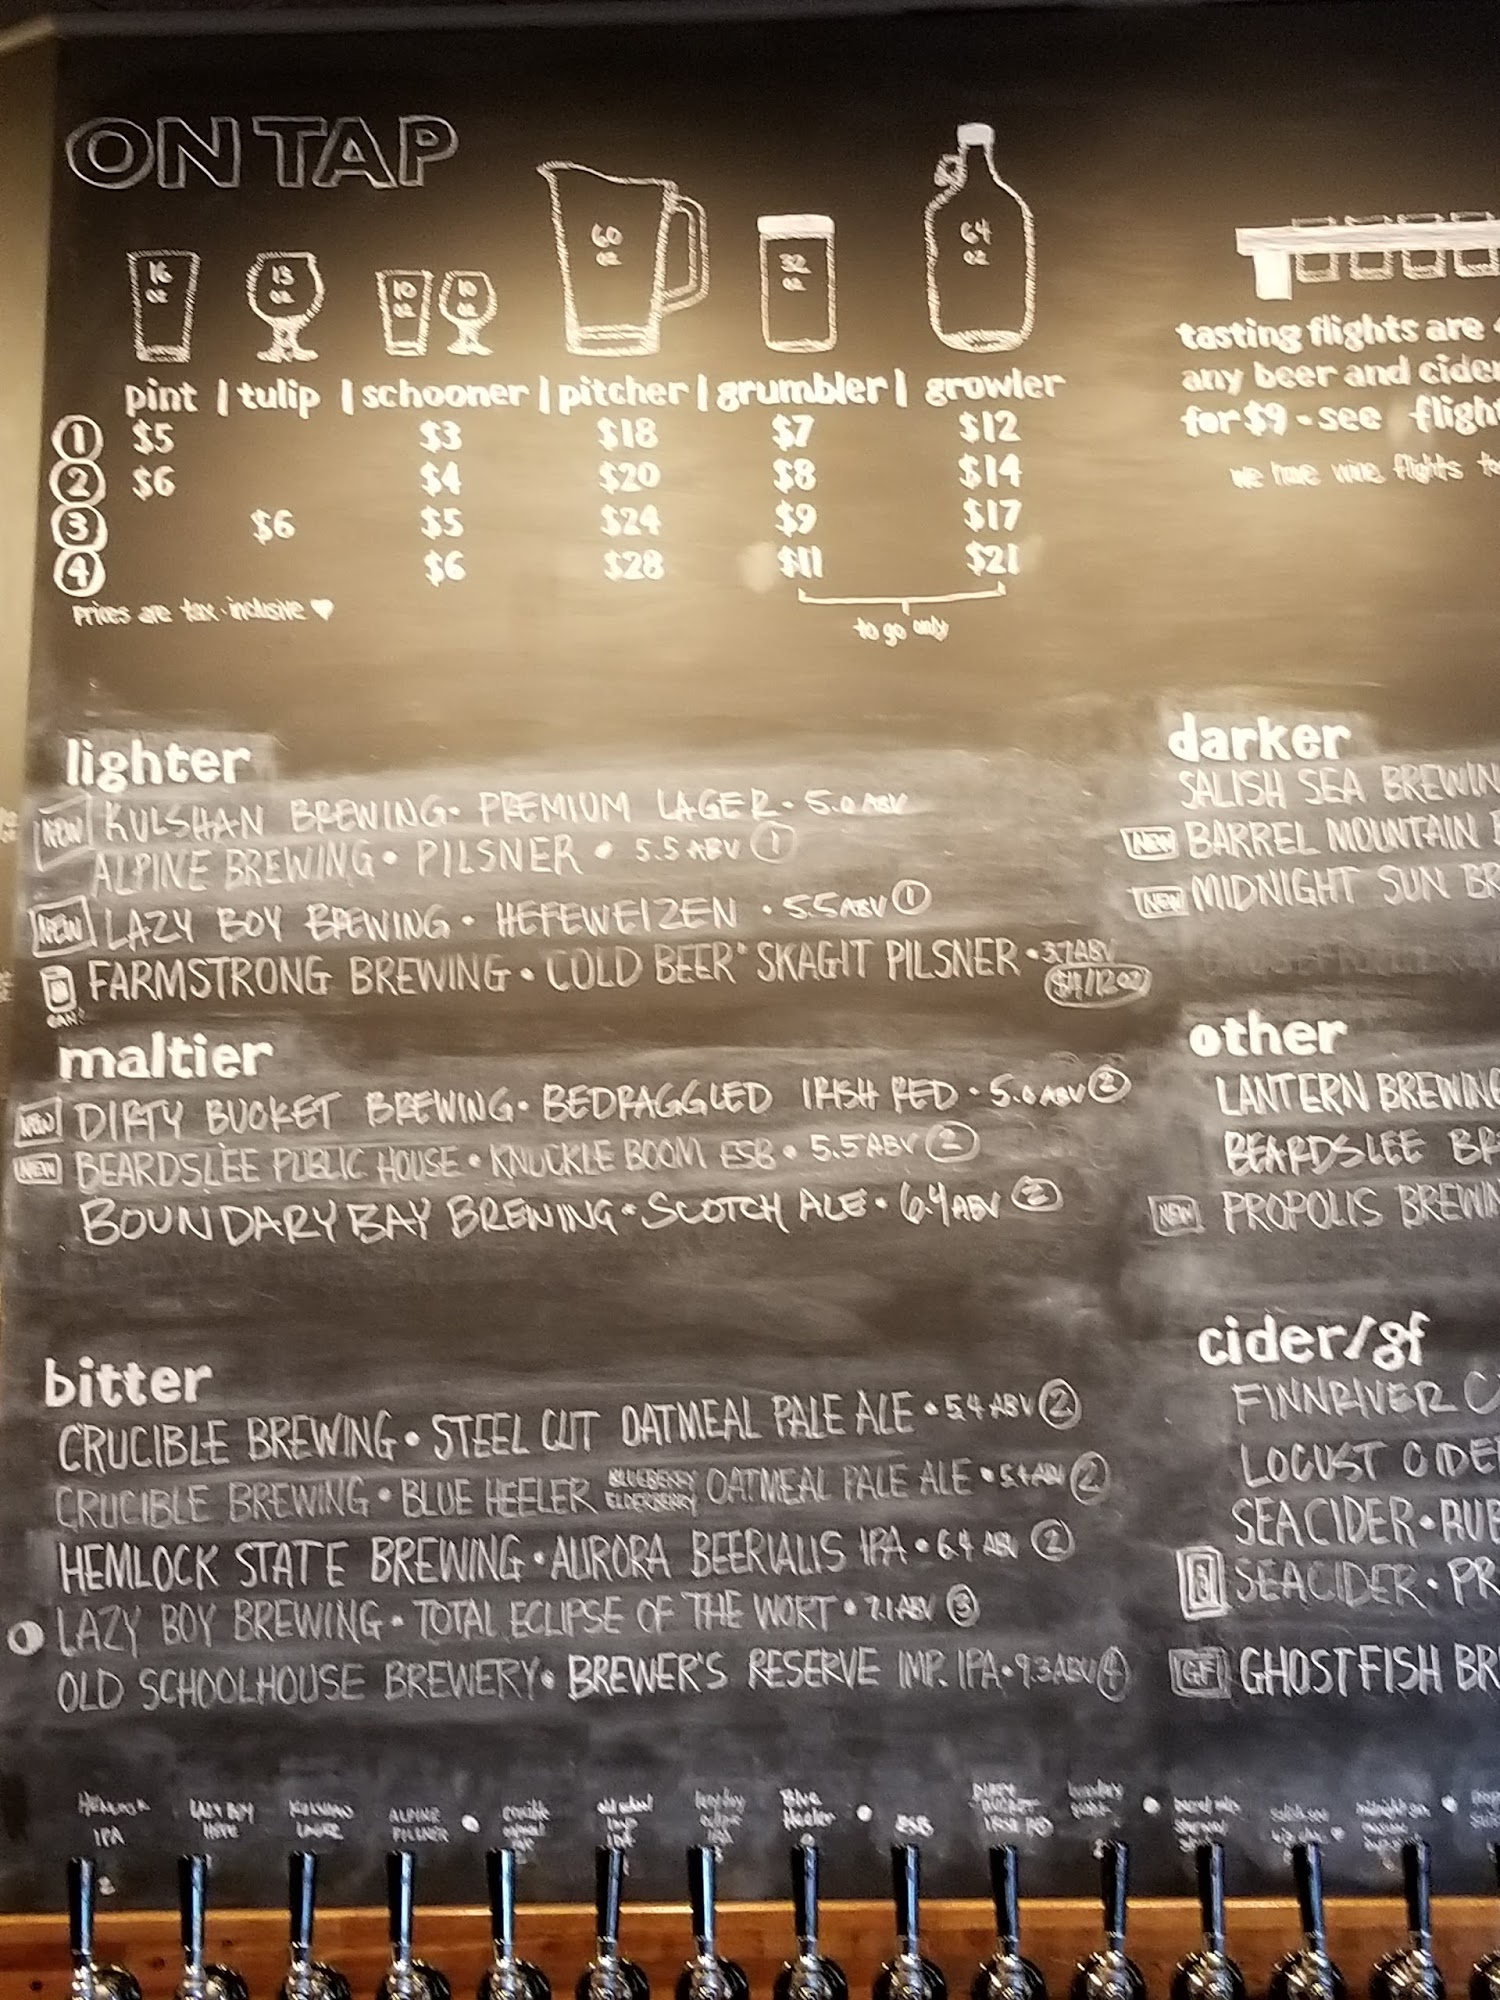 ON TAP
16 oz
13 oz
10 oz
10 oz
60 oz
32 oz
64 oz
pint | tulip | schooner | pitcher | grumbler | growler
1 $5 $3 $18 $7 $12
2 $6 $4 $20 $8 $14
3 $6 $5 $24 $9 $17
4 $6 $28 $11 $21
Prices are tax-inclusive ♥
to go only
tasting flights are
any beer and cider
for $9 - see flight
we have wine flights
lighter
NEW KULSHAN BREWING • PREMIUM LAGER • 5.0 ABV
ALPINE BREWING • PILSNER • 5.5 ABV 1
NEW LAZY BOY BREWING • HEFEWEIZEN • 5.5 ABV 1
CAN! FARMSTRONG BREWING • COLD BEER • SKAGIT PILSNER • 3.7 ABV
$4/12 oz
maltier
NEW DIRTY BUCKET BREWING • BEDRAGGLED IRISH RED • 5.0 ABV 2
NEW BEARDSLEE PUBLIC HOUSE • KNUCKLE BOOM ESB • 5.5 ABV 2
BOUNDARY BAY BREWING • SCOTCH ALE • 6.4 ABV 2
bitter
CRUCIBLE BREWING • STEEL CUT OATMEAL PALE ALE • 5.4 ABV 2
CRUCIBLE BREWING • BLUE HEELER BLUEBERRY ELDERBERRY OATMEAL PALE ALE • 5.4 ABV 2
HEMLOCK STATE BREWING • AURORA BEERIALIS IPA • 6.4 ABV 2
LAZY BOY BREWING • TOTAL ECLIPSE OF THE WORT • 7.1 ABV 3
OLD SCHOOLHOUSE BREWERY • BREWER'S RESERVE IMP. IPA • 9.3 ABV 4
darker
SALISH SEA BREWIN
NEW BARREL MOUNTAIN
NEW MIDNIGHT SUN BR
other
LANTERN BREWING
BEARDSLEE BR
NEW PROPOLIS BREWIN
cider/gf
FINNRIVER C
LOCUST CIDE
SEACIDER • RUB
SEACIDER • PR
GF GHOSTFISH BR
HEMLOCK IPA 2
LAZY BOY HEFE
KULSHAN LAGER
ALPINE PILSNER
Blue Heeler
ESB
DIRTY BUCKET IRISH RED